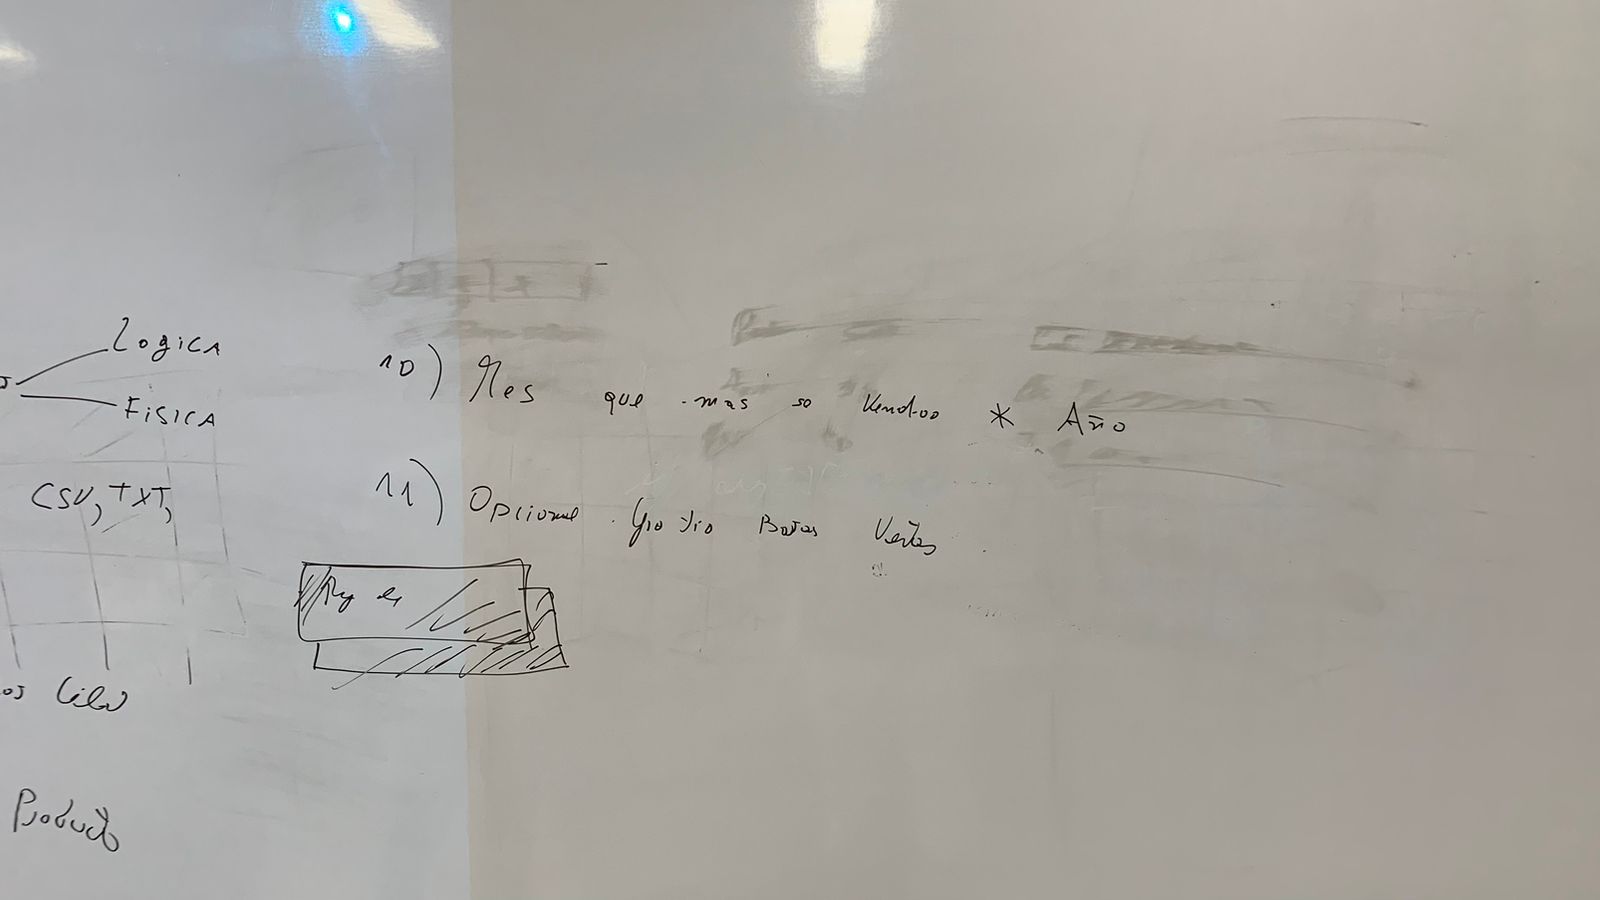 Logica
Fisica
CSV, TXT,
Producto
10) Mes que mas se vendio * Año
11) Opcional Barras Ventas